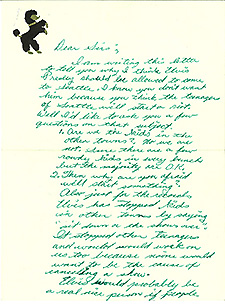 Dear Sirs;
I am writing this letter
to tell you why I think Elvis
Presley should be allowed to come
to Seattle. I know you don't want
him because you think the teenagers
of Seattle will start a riot.
Well I'd like to ask you a few
questions on that subject.
1. Are we the kids in the
other towns? No we are
not. there are a few
rowdy kids in every bunch
but the majority are O.K.
2. Then why are you afraid
we'll start something?
Also just for the records
Elvis has stopped kids
in other towns by saying
"sit down or the show's over"
It stopped other teenagers
and would work on
us too because no one would
want to be the cause of
canceling a show.
Elvis would probably be
a real nice person if people